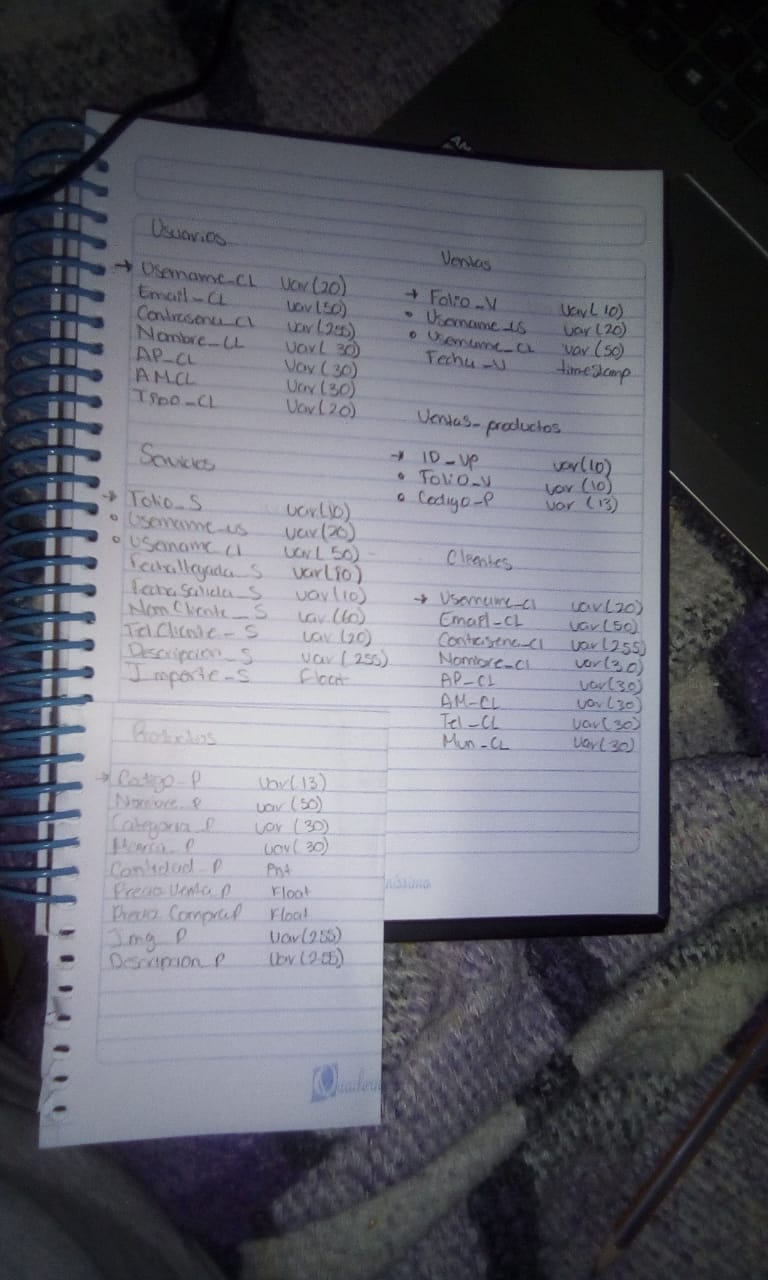 Usuarios
→ Username_CL var(20)
Email_CL var(50)
Contrasena_CL var(255)
Nombre_CL var(30)
AP_CL var(30)
AMCL var(30)
Tipo_CL var(20)
Servicios
→ Folio_S var(10)
• Username_us var(20)
• Username_Cl var(50)
Fechallegada_S var(10)
FechaSalida_S var(10)
NomCliente_S var(60)
TelCliente_S var(20)
Descripcion_S var(255)
Importe_S Float
Productos
→ Codigo_P var(13)
Nombre_P var(50)
Categoria_P var(30)
Marca_P var(30)
Cantidad_P int
PrecioVenta_P Float
PrecioCompraP Float
Img_P var(255)
Descripcion_P var(255)
Ventas
→ Folio_V var(10)
• Username_us var(20)
• Username_CL var(50)
Fecha_V timestamp
Ventas_productos
→ ID_VP var(10)
• Folio_V var(10)
• Codigo_P var(13)
Clientes
→ Username_Cl var(20)
Email_CL var(50)
Contrasena_Cl var(255)
Nombre_Cl var(30)
AP_CL var(30)
AM_CL var(30)
Tel_CL var(30)
Mun_CL var(30)